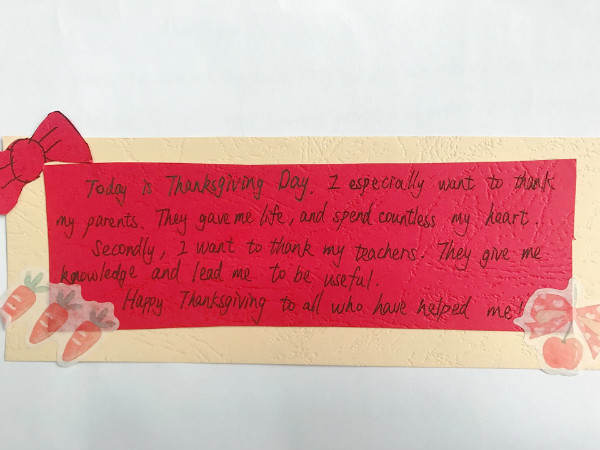 Today is Thanksgiving Day. I especially want to thank
my parents. They gave me life, and spend countless my heart
Secondly, I want to thank my teachers. They give me
knowledge and lead me to be useful.
Happy Thanksgiving to all who have helped me!